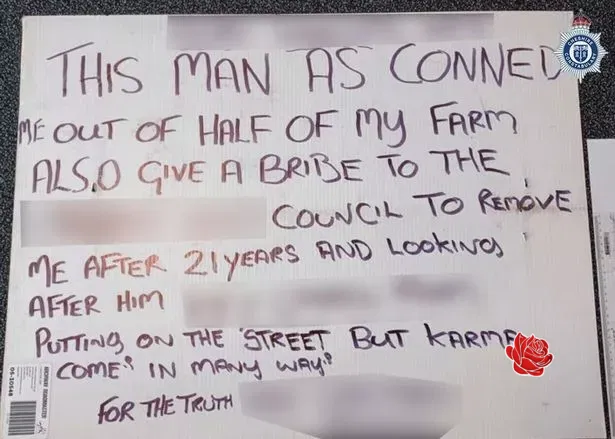 THIS MAN AS CONNED
ME OUT OF HALF OF MY FARM
ALSO GIVE A BRIBE TO THE
COUNCIL TO REMOVE
ME AFTER 21 YEARS AND LOOKING
AFTER HIM
PUTTING ON THE STREET BUT KARMA
COMES IN MANY WAYS
FOR THE TRUTH